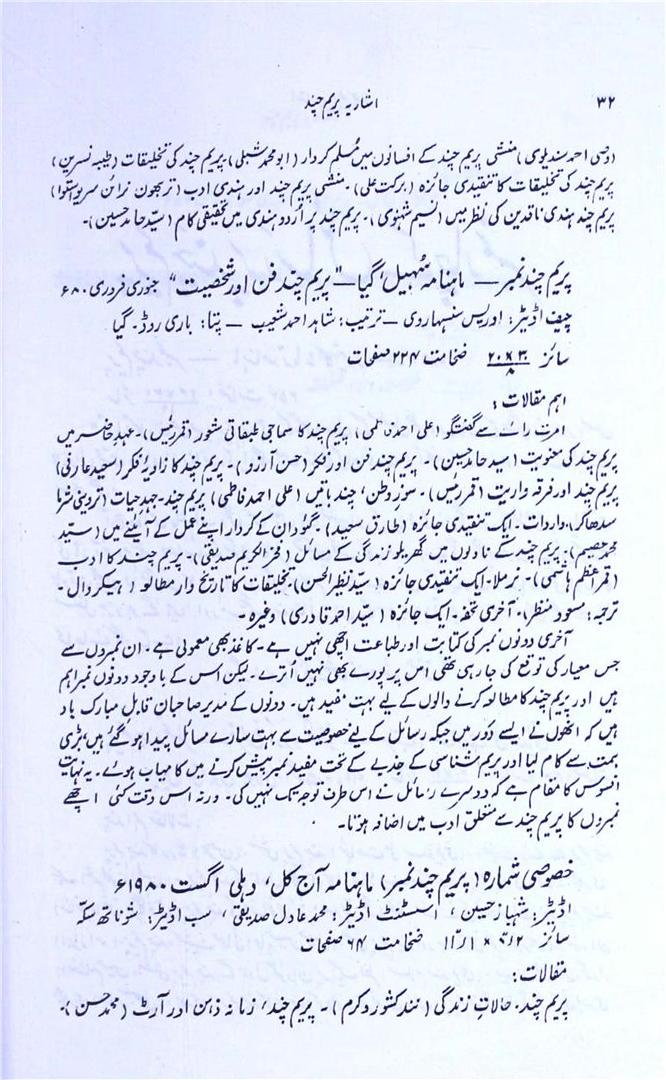 ۳۲ اشاریہ پریم چند
(وصی احمد سندیلوی) منشی پریم چند کے افسانوں میں مسلم کردار (ابو محمد شبلی) پریم چند کی تخلیقات (طیبہ نسرین)
پریم چند کی تخلیقات کا تنقیدی جائزہ (برکت علی)۔ منشی پریم چند اور ہندی ادب (تربھون نرائن سریوستوا)
پریم چند ہندی ناقدین کی نظر میں (نسیم شہنوی)۔ پریم چند پر اُردو ہندی میں تحقیقی کام (سید حامد حسین)۔
پریم چند نمبر — ماہنامہ سُہیل، گیا — "پریم چند فن اور شخصیت" جنوری فروری ۸۰ ۶
چیف اڈیٹر: ادریس سنسہاروی — ترتیب: شاہد احمد شعیب — پتا: باری روڈ۔ گیا
سائز ۲۰×۳۰/۸ ضخامت ۲۲۴ صفحات
اہم مقالات:
امرت رائے سے گفتگو (علی احمد فاطمی) پریم چند کا سماجی طبقاتی شعور (قمر رئیس)۔ عہدِ حاضر میں
پریم چند کی معنویت (سید حامد حسین)۔ پریم چند فن اور فکر (حسن آرزو)۔ پریم چند کا زاویۂ فکر (سعید عارفی)
پریم چند اور فرقہ واریت (قمر رئیس)۔ سوزِ وطن، چند باتیں (علی احمد فاطمی) پریم چند۔ جہدِ حیات (تروینی شرما
سدھاکر)، واردات۔ ایک تنقیدی جائزہ (طارق سعید)۔ گئودان کے کردار اپنے عمل کے آئینے میں (سیّد
محمد عصیم)۔ پریم چند کے ناولوں میں گھریلو زندگی کے مسائل (فخر الکریم صدیقی)۔ پریم چند کا ادب
(قمر اعظم ہاشمی)۔ نرملا۔ ایک تنقیدی جائزہ (سیّد نظیر الحسن)۔ تخلیقات کا تاریخ وار مطالعہ (ہیکر وال۔
ترجمہ: مسعود منظر)، آخری تحفہ۔ ایک جائزہ (سیّد احمد قادری) وغیرہ۔
آخری دونوں نمبر کی کتابت اور طباعت اچھی نہیں ہے۔ کاغذ بھی معمولی ہے۔ ان نمبروں سے
جس معیار کی توقع کی جا رہی تھی اس پر پورے بھی نہیں اُترے۔ لیکن اس کے باوجود دونوں نمبر اہم
ہیں اور پریم چند کا مطالعہ کرنے والوں کے لیے بہت مفید ہیں۔ دونوں کے مدیر صاحبان قابلِ مبارک باد
ہیں کہ انھوں نے ایسے دَور میں جبکہ رسائل کے لیے خصوصیت سے بہت سارے مسائل پیدا ہو گئے ہیں، بڑی
ہمت سے کام لیا اور پریم شناسی کے جذبے کے تحت مفید نمبر پیش کرنے میں کامیاب ہوئے۔ یہ نہایت
افسوس کا مقام ہے کہ دوسرے رسائل نے اس طرف توجہ تک نہیں کی۔ ورنہ اس وقت کئی اچھے
نمبروں کا پریم چند سے متعلق ادب میں اضافہ ہوتا۔
خصوصی شمارہ (پریم چند نمبر) ماہنامہ آج کل، دہلی اگست ۱۹۸۰ء
اڈیٹر: شہباز حسین، اسسٹنٹ اڈیٹر: محمد عادل صدیقی، سب اڈیٹر: شوناتھ سکّہ
سائز ضخامت ۶۴ صفحات
مقالات:
پریم چند۔ حالاتِ زندگی (نند کشور وکرم)۔ پریم چند، زمانہ ذہن اور آرٹ (محمد حسن)۔